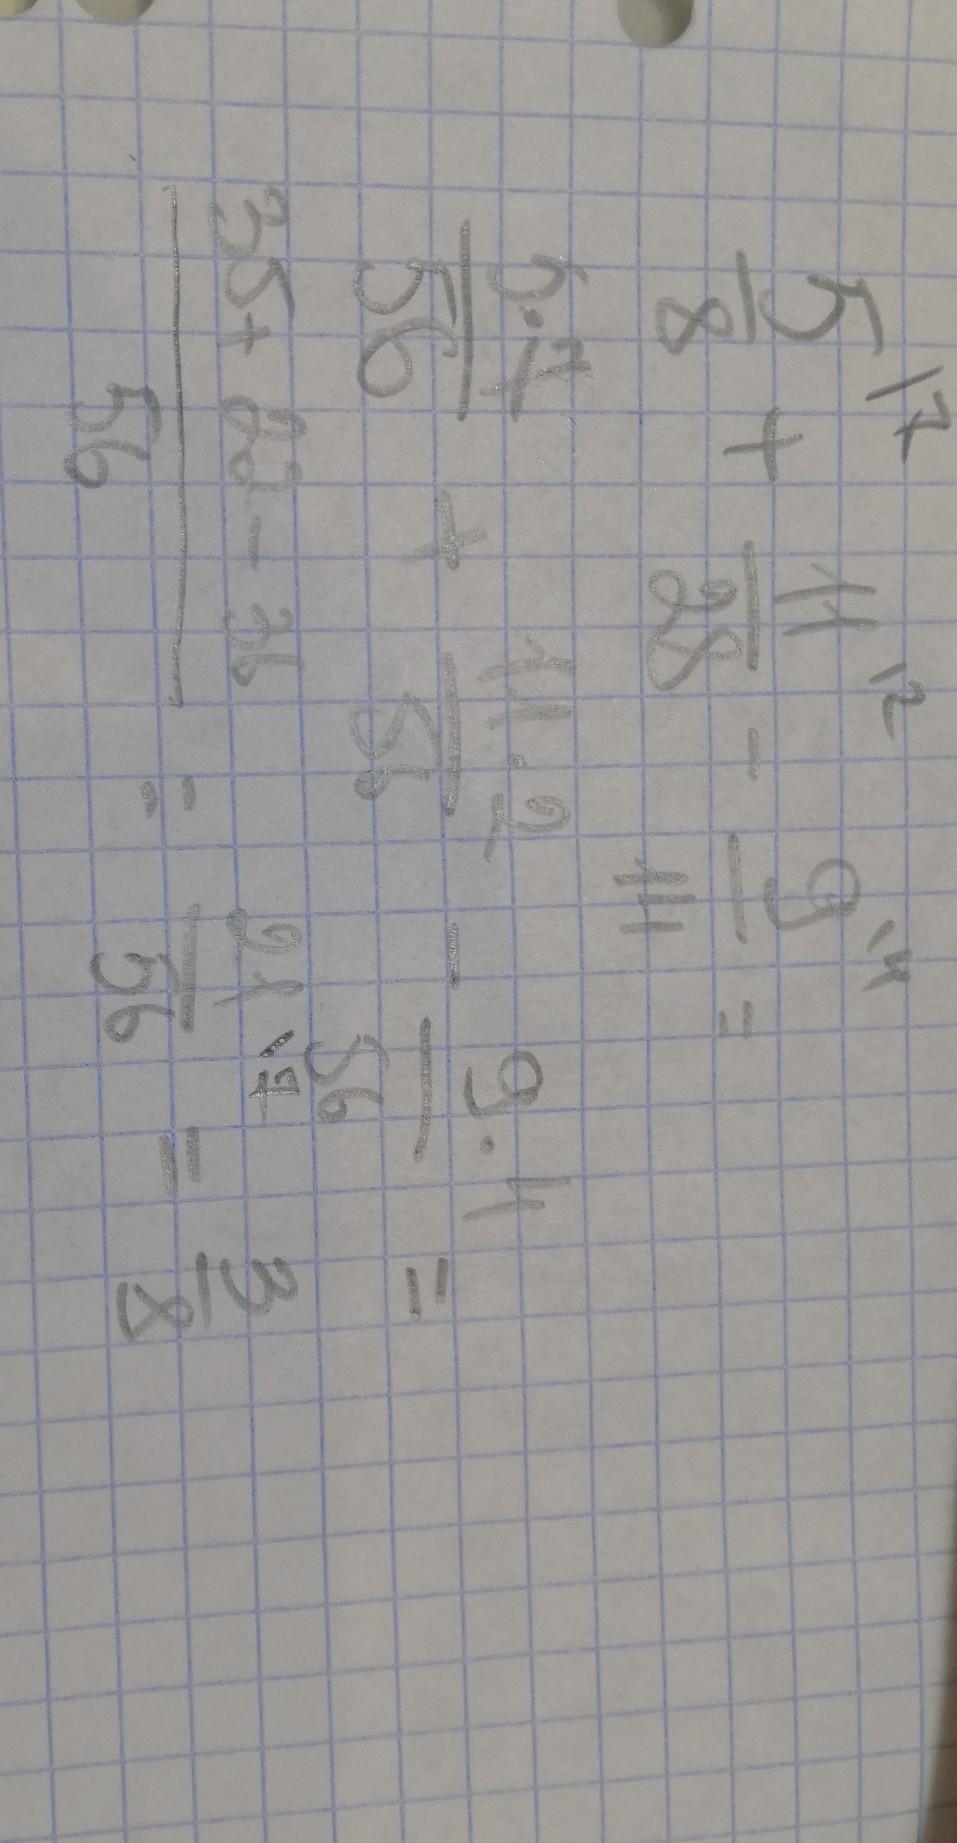 5/8 \7 + 11/28 \2 - 9/11 \4 =
5·7/56 + 11·2/56 - 9·4/56 =
35+22-36/56 = 21/56 \7 = 3/8